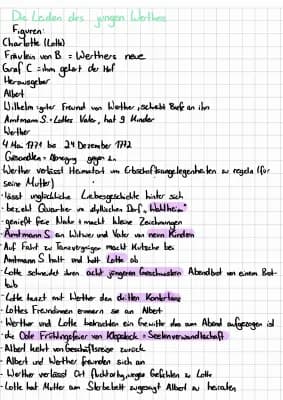 Die Leiden des jungen Werthers
Figuren:
Charlotte (Lotte)
Fräulein von B. = Werthers neue
Graf C = ihm gehört der Hof
Herausgeber
Albert
Wilhelm : guter Freund von Werther, schreibt Briefe an ihn
Amtmann S. = Lottes Vater, hat 9 Kinder
Werther
4 Mai 1771 bis 24 Dezember 1772
Gesandter = Abneigung gegen
Werther verlässt Heimatort um Erbschaftsangelegenheiten zu regeln (für
seine Mutter)
- lässt unglückliche Liebesgeschichte hinter sich
- bezieht Quartier im idyllischen Dorf „Wahlheim"
- genießt freie Natur & macht kleine Zeichnungen
- Amtmann S. ein Witwer und Vater von neun Kindern
- Auf Fahrt zu Tanzvergnügen macht Kutsche bei
Amtmann S halt und holt Lotte ab
- Lotte schneidet ihren acht jüngeren Geschwistern Abendbrot von einem Brot-
laib
- Lotte tanzt mit Werther den dritten Kontertanz
- Lottes Freundinnen erinnern sie an Albert
- Werther und Lotte betrachten ein Gewitter das am Abend aufgezogen ist
- die Ode Frühlingsfeier von Klopstock = Seelenverwandtschaft
- Albert kehrt von Geschäftsreise zurück
- Albert und Werther freunden sich an
- Werther verlässt Ort fluchtartig wegen Gefühlen zu Lotte
- Lotte hat Mutter am Sterbebett zugesagt Albert zu heiraten